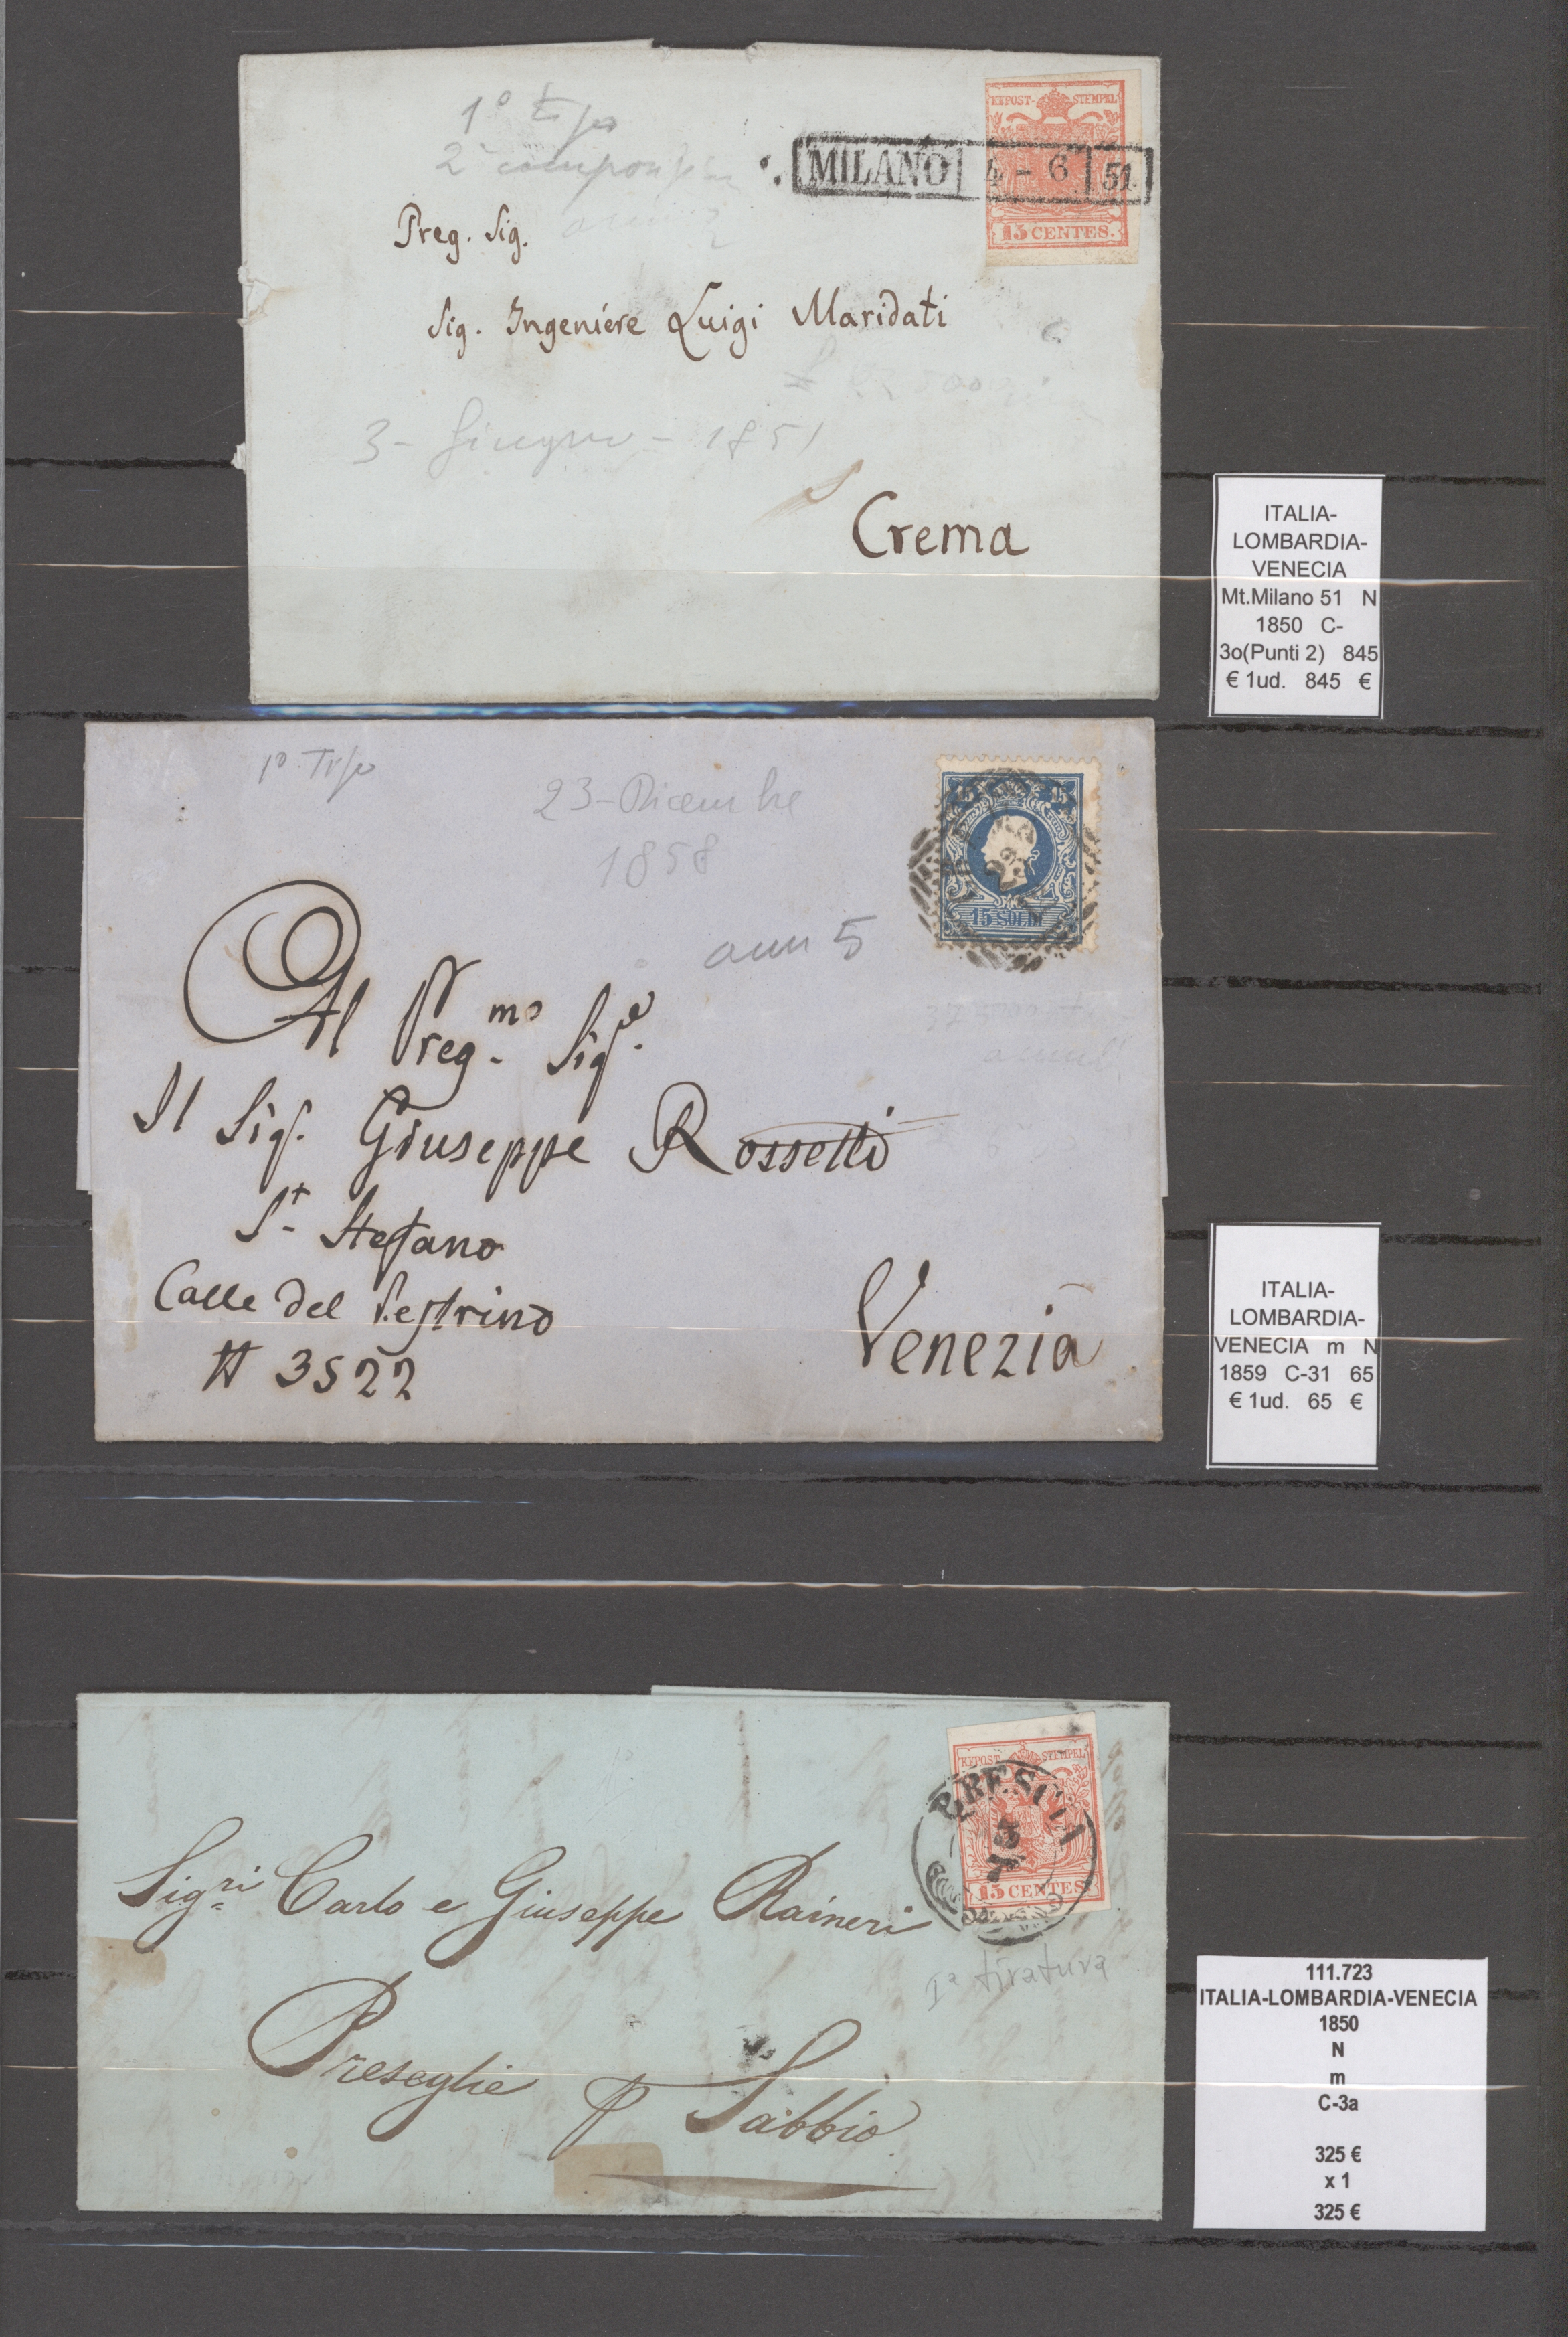 1º tipo
2ª composizione
KKPOST-STEMPEL
MILANO 4 - 6 51
15 CENTES.
Preg. Sig.
Sig. Ingeniére Luigi Maridati
3 - Giugno - 1851
Crema
ITALIA-
LOMBARDIA-
VENECIA
Mt.Milano 51 N
1850 C-
3o(Punti 2) 845
€ 1ud. 845 €
1º Tipo
23 - Dicembre
1858
15 15
15 SOLDI
ann 5
Al Preg.mo Sig.e
Il Sig. Giuseppe Rossetti
S.t Stefano
Calle del Pestrino
N 3522
Venezia
ITALIA-
LOMBARDIA-
VENECIA m N
1859 C-31 65
€ 1ud. 65 €
KKPOST-STEMPEL
BRESCIA
15 CENTES.
Sig.ri Carlo e Giuseppe Raineri
Iª tiratura
Preseglie p Sabbio
111.723
ITALIA-LOMBARDIA-VENECIA
1850
N
m
C-3a
325 €
x 1
325 €